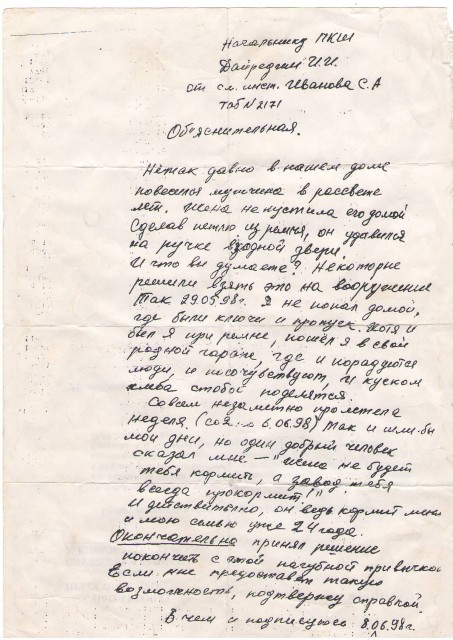 Начальнику ПКШ
от см. инст. Иванова С.А
Таб N 2171
Объяснительная.
Нетак давно в нашем доме
повесился мужчина в рассвете
лет. Жена непустила его домой
Сделав петлю из ремня, он удавился
на ручке входной двери.
И что вы думаете? Некоторые
решили взять это на вооружение
Так 29.05.98г. Я не попал домой,
где были ключи и пропуск. Хотя и
был я при ремне, пошёл я в свой
родной гараж, где и порадуются
люди, и посочувствуют, и куском
хлеба стобой поделятся.
Совсем незаметно пролетела
неделя. (со 2 по 6.06.98) Так и шли бы
мои дни, но один добрый человек
сказал мне – "жена не будет
тебя кормить, а завод тебя
всегда прокормит!"
И действительно, он ведь кормит меня
и мою семью уже 24 года.
Окончательно принял решение
покончить с этой пагубной привычкой
Если мне предоставят такую
возможность, подтвержу справкой.
В чем и подписуюсь 8.06.98г.